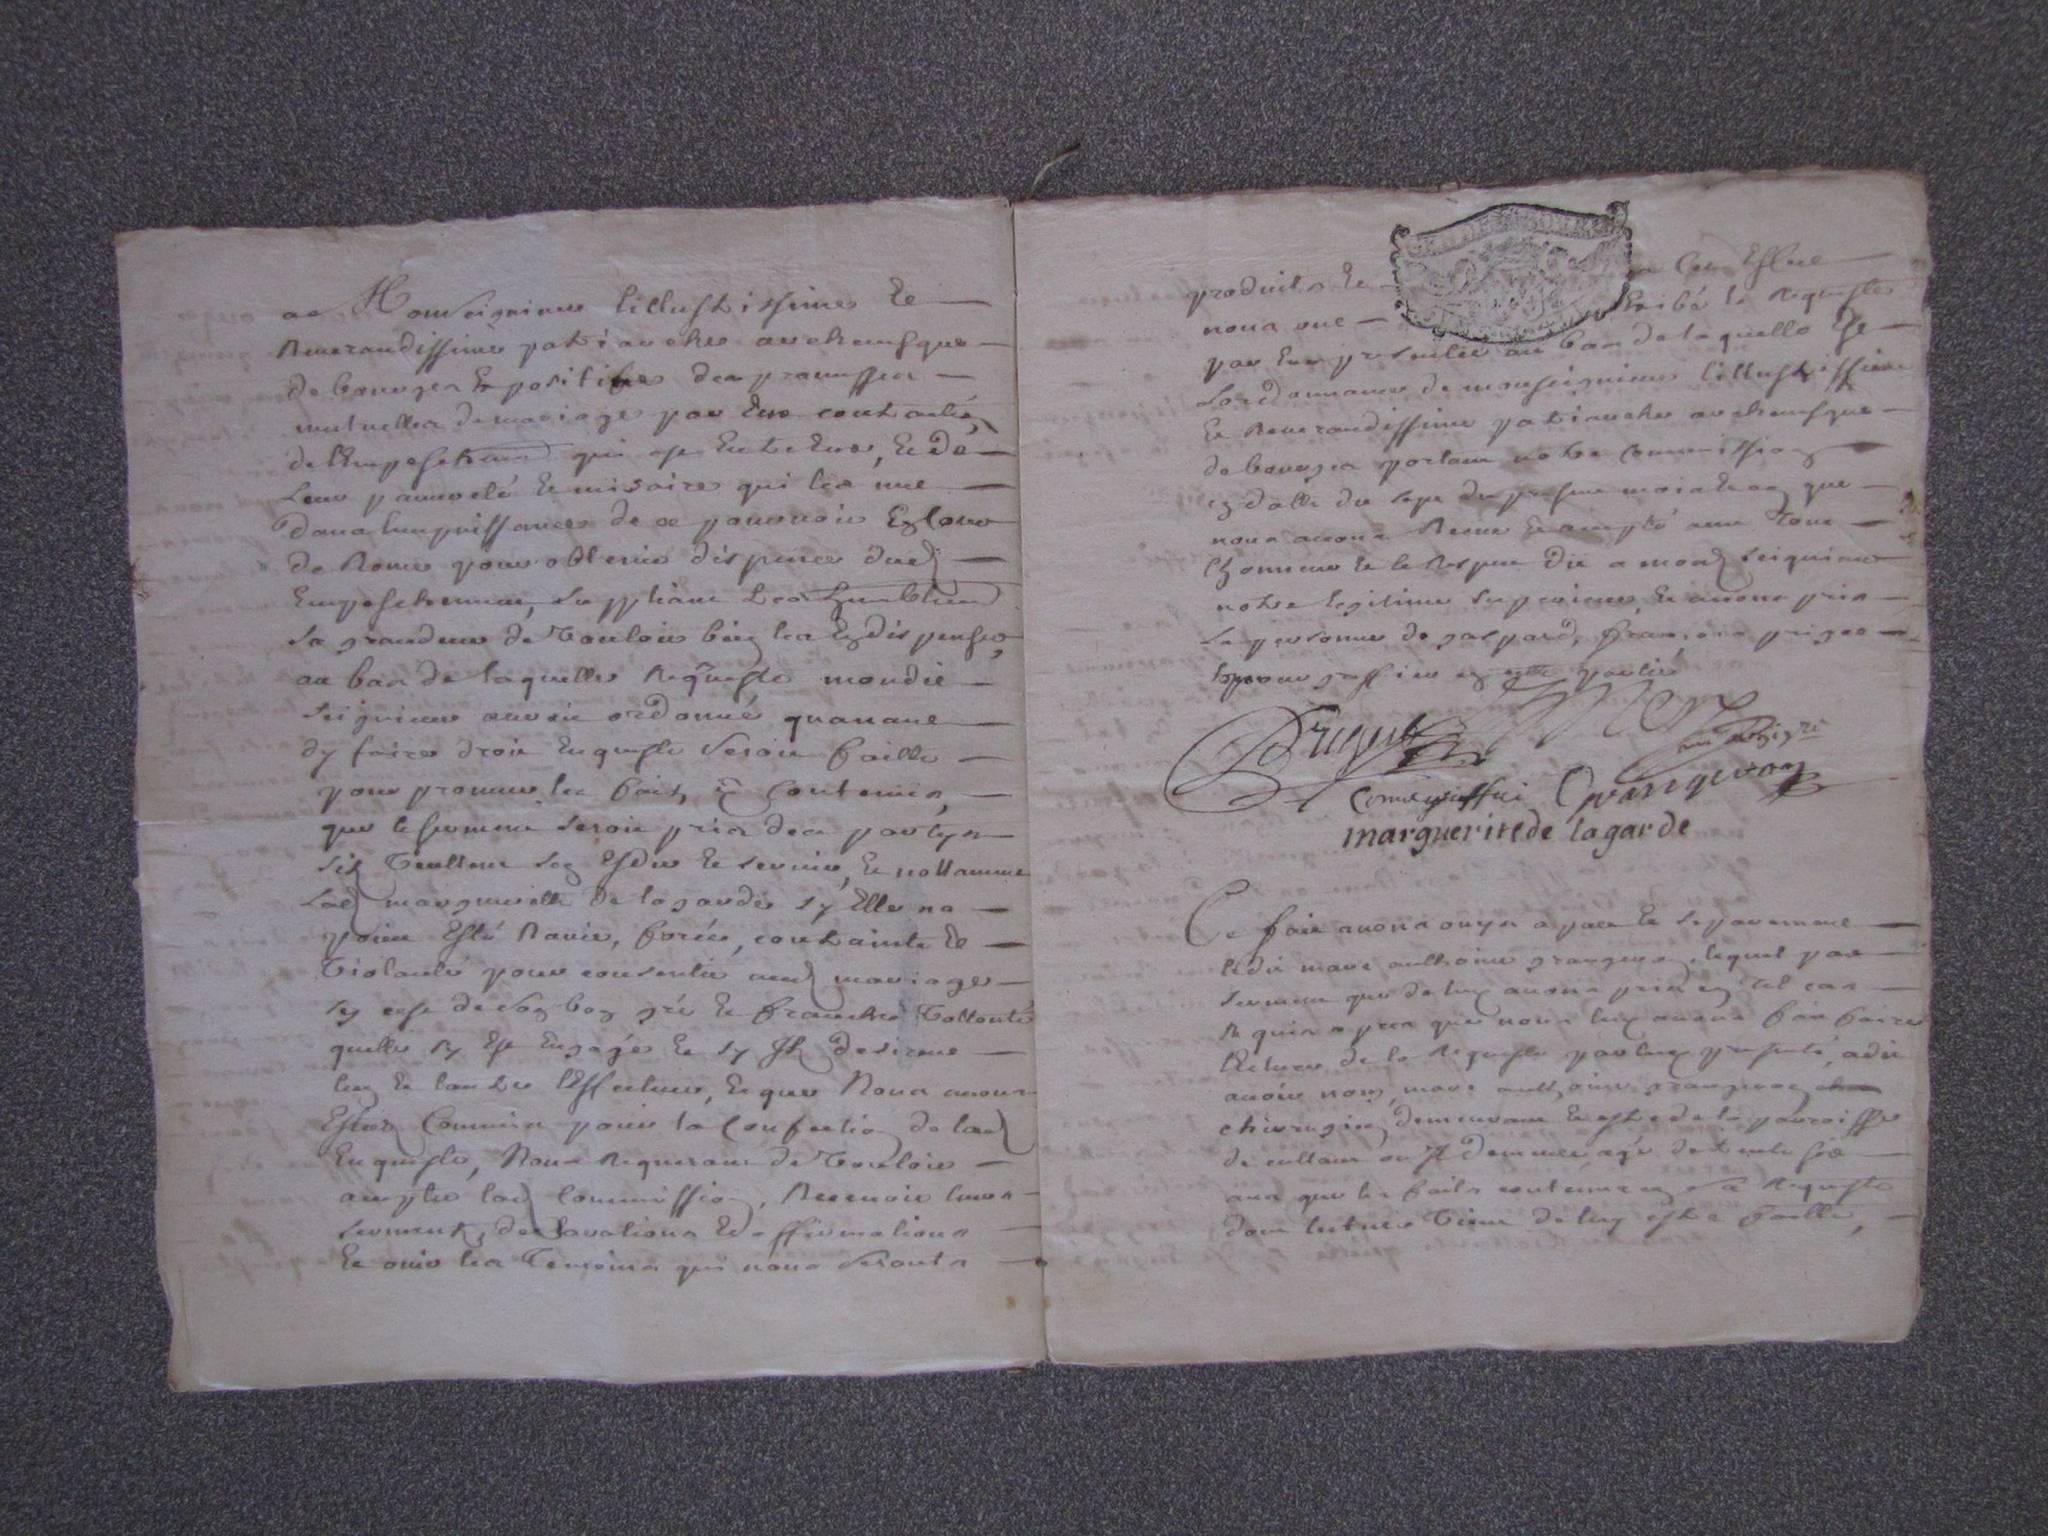 a Monseigneur lillustrissime Et
Reverandissime patriarche archevesque
de bourges Expositifve des promesses
mutuelles de mariage par Eux contractées
de lEmpeschement qui est Entre Eux, Et de
Leur pauvreté Et misaire qui les met
dans limpuissance de se pourvoir En Cour
de Rome pour obtenir dispence dud
Empeschement, suppliant tres humblement
sa grandeur de Vouloir bien les En dispenser,
au bas de laquelle Requeste mondit
seigneur auroit ordonné quavant
dy faire droit Enqueste seroit faitte
pour prouver les faits y Contenus,
que le serment seroit pris des partyes
sils Veullent sen Ester Et servir, Et nottamment
lad margueritte de lagarde sy Elle na
point Esté Ravie, forcée, contrainte Et
Violantée pour consentir aud mariage
sy cest de son bon gré Et franche Vollonté
quelle sy Est Engagée Et sy Ils desirent
lun Et lautre lEffectuer, Et que Nous avons
Esté Commis pour la Confection de lad
Enqueste, Nous Requerant de Vouloir
accepter lad Commission, Recevoir leurs
serments, declarations Et affirmations
Et ouir les Temoins qui nous seronts
produits Et
nous ont Exibé la Requeste
par Eux presentée au bas de laquelle Est
Lordonnance de monseigneur lillustrissime
Et Reverandissime patriarche archevesque
de bourges portant notre Commission
En datte du sept du present mois Et an que
nous avons Receue Et accepté avec Tout
lhonneur Et le Respect dû a mond seigneur
notre legitime superieur, Et avons pris
La personne de gaspard, françois
pour greffier En cette partie
Grangeron
marguerite de lagarde
Ce fait avons ouyr a part Et separement
ledit marc anthoine grangeron, lequel par
serment que de luy avons pris En tel cas
Requis apres que nous luy avons fait faire
lecture de la Requeste par luy presenté, a dit
avoir nom, marc anthoine grangeron
chirurgien demeurant Et Estre de la paroisse
de cullant ou Il demeure agé de trente six
ans que les faits contenus En sa Requeste
dont lecture Vient de luy estre faitte,